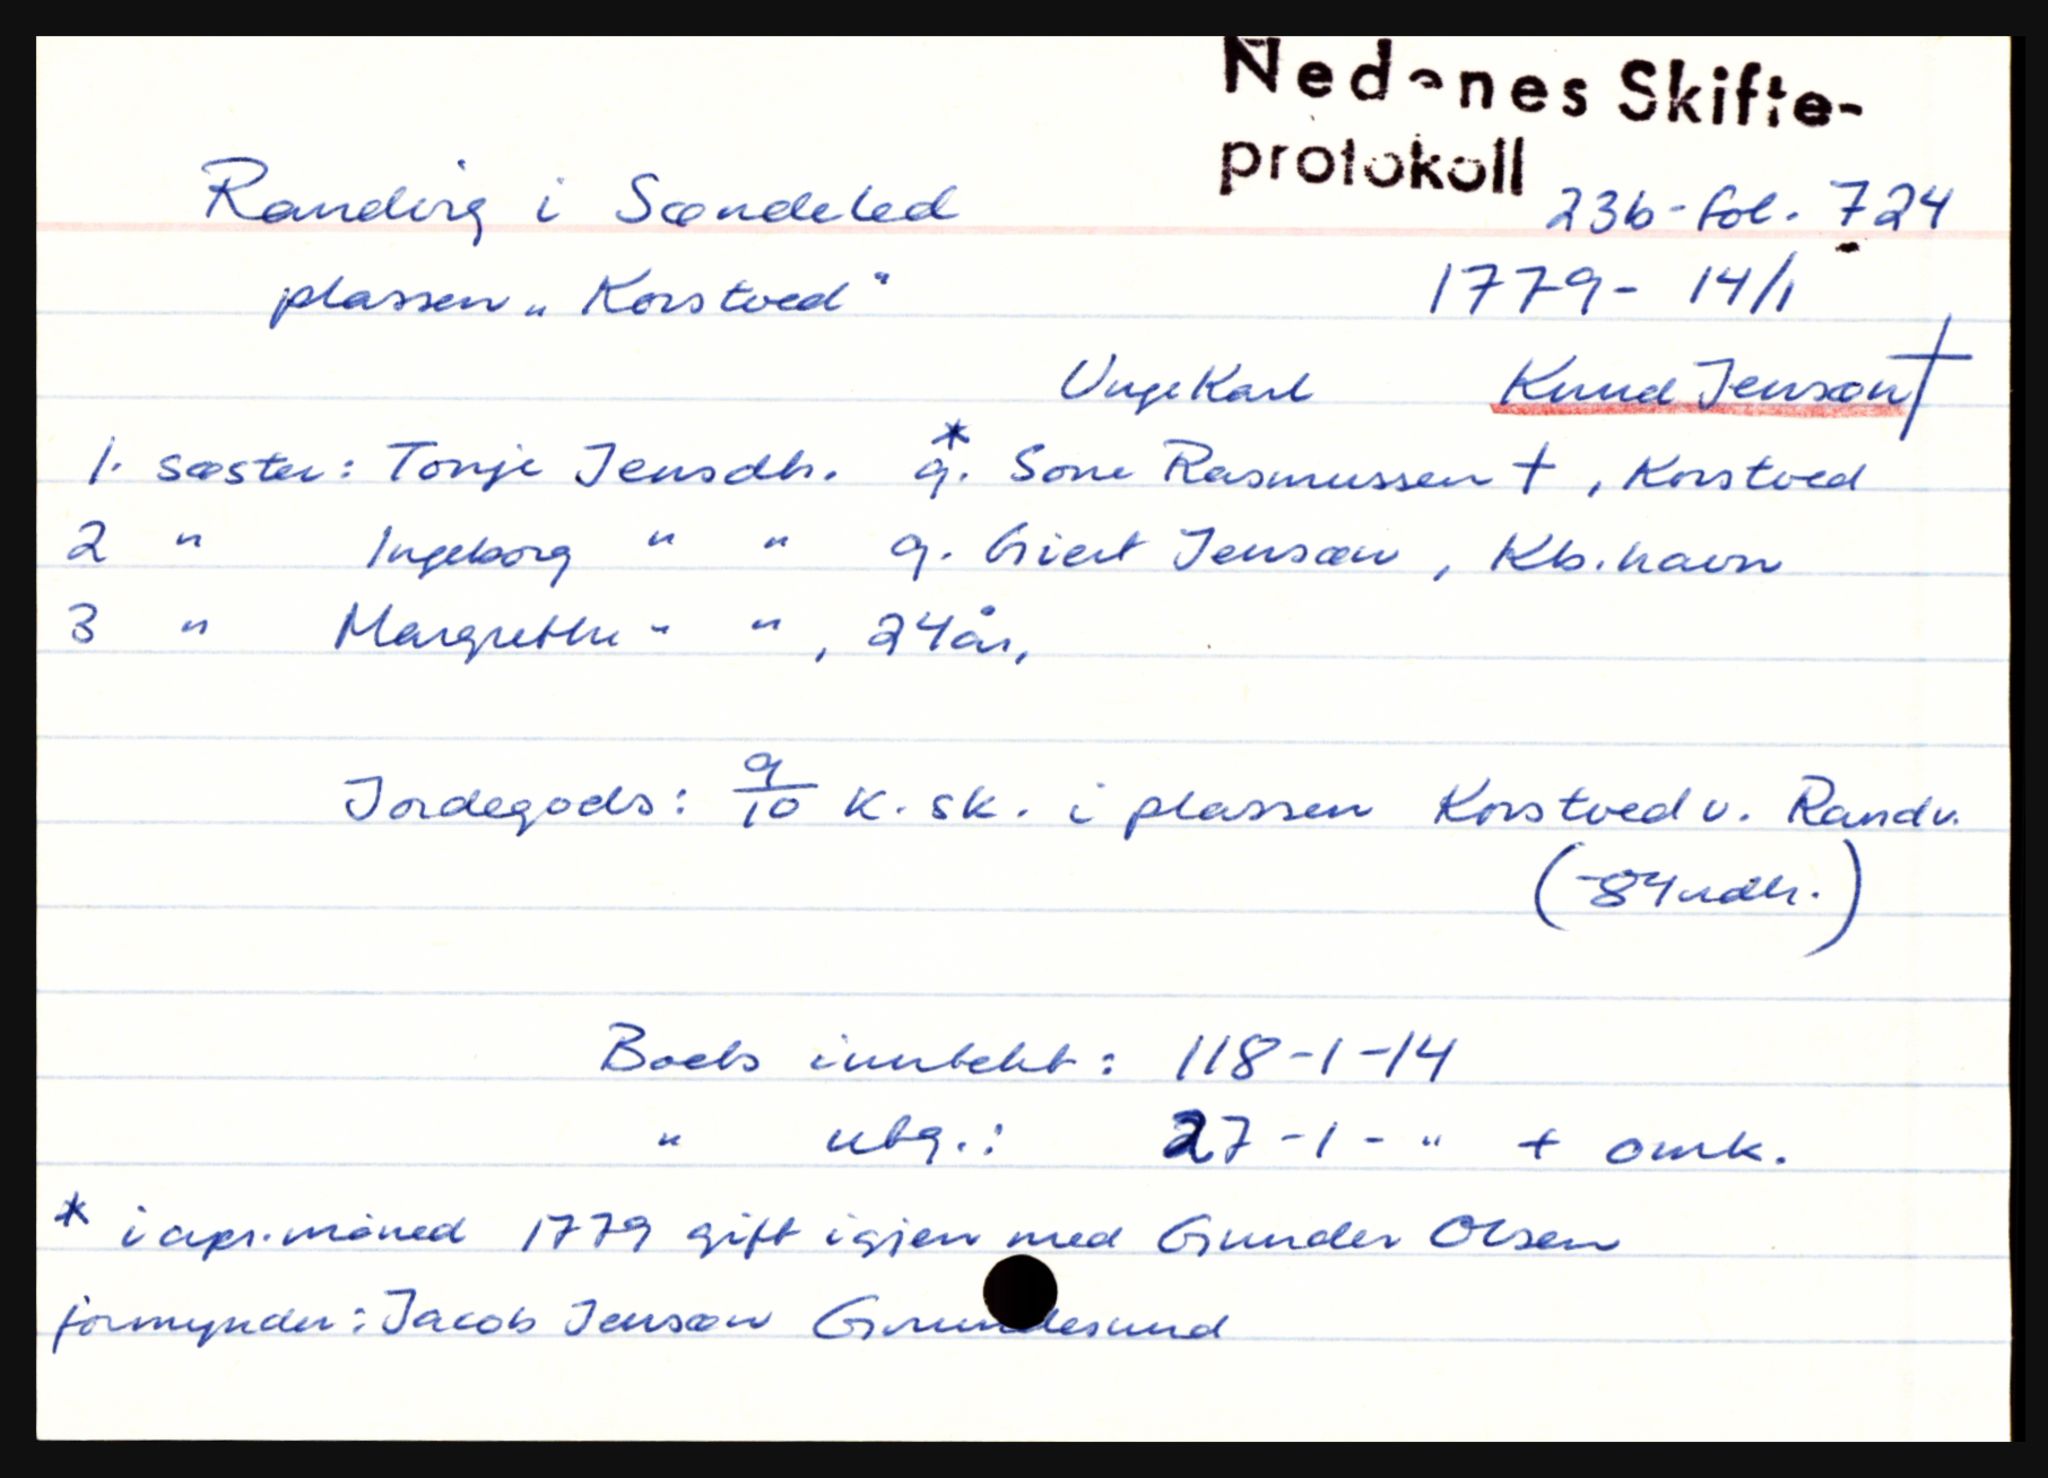 Nedenes Skifte-
protokoll
Randvig i Søndeled 23b - fol. 724
plassen „Korstved" 1779 - 14/1
Unge Karl Knud Jensøn †
1. søster: Tonje Jensdtr. * g. Sone Rasmussen †, Korstved
2 " Ingeborg " " g. Giert Jensøn, Kb.havn
3 " Margrethe " ", 24 år,
Jordegods: 9/10 k. sk. i plassen Korstved v. Randv.
(-84 rdlr.)
Boets inntekt: 118-1-14
" utg.: 27-1-" + omk.
* i apr. måned 1779 gift igjen med Gunder Olsen
formynder: Jacob Jensøn